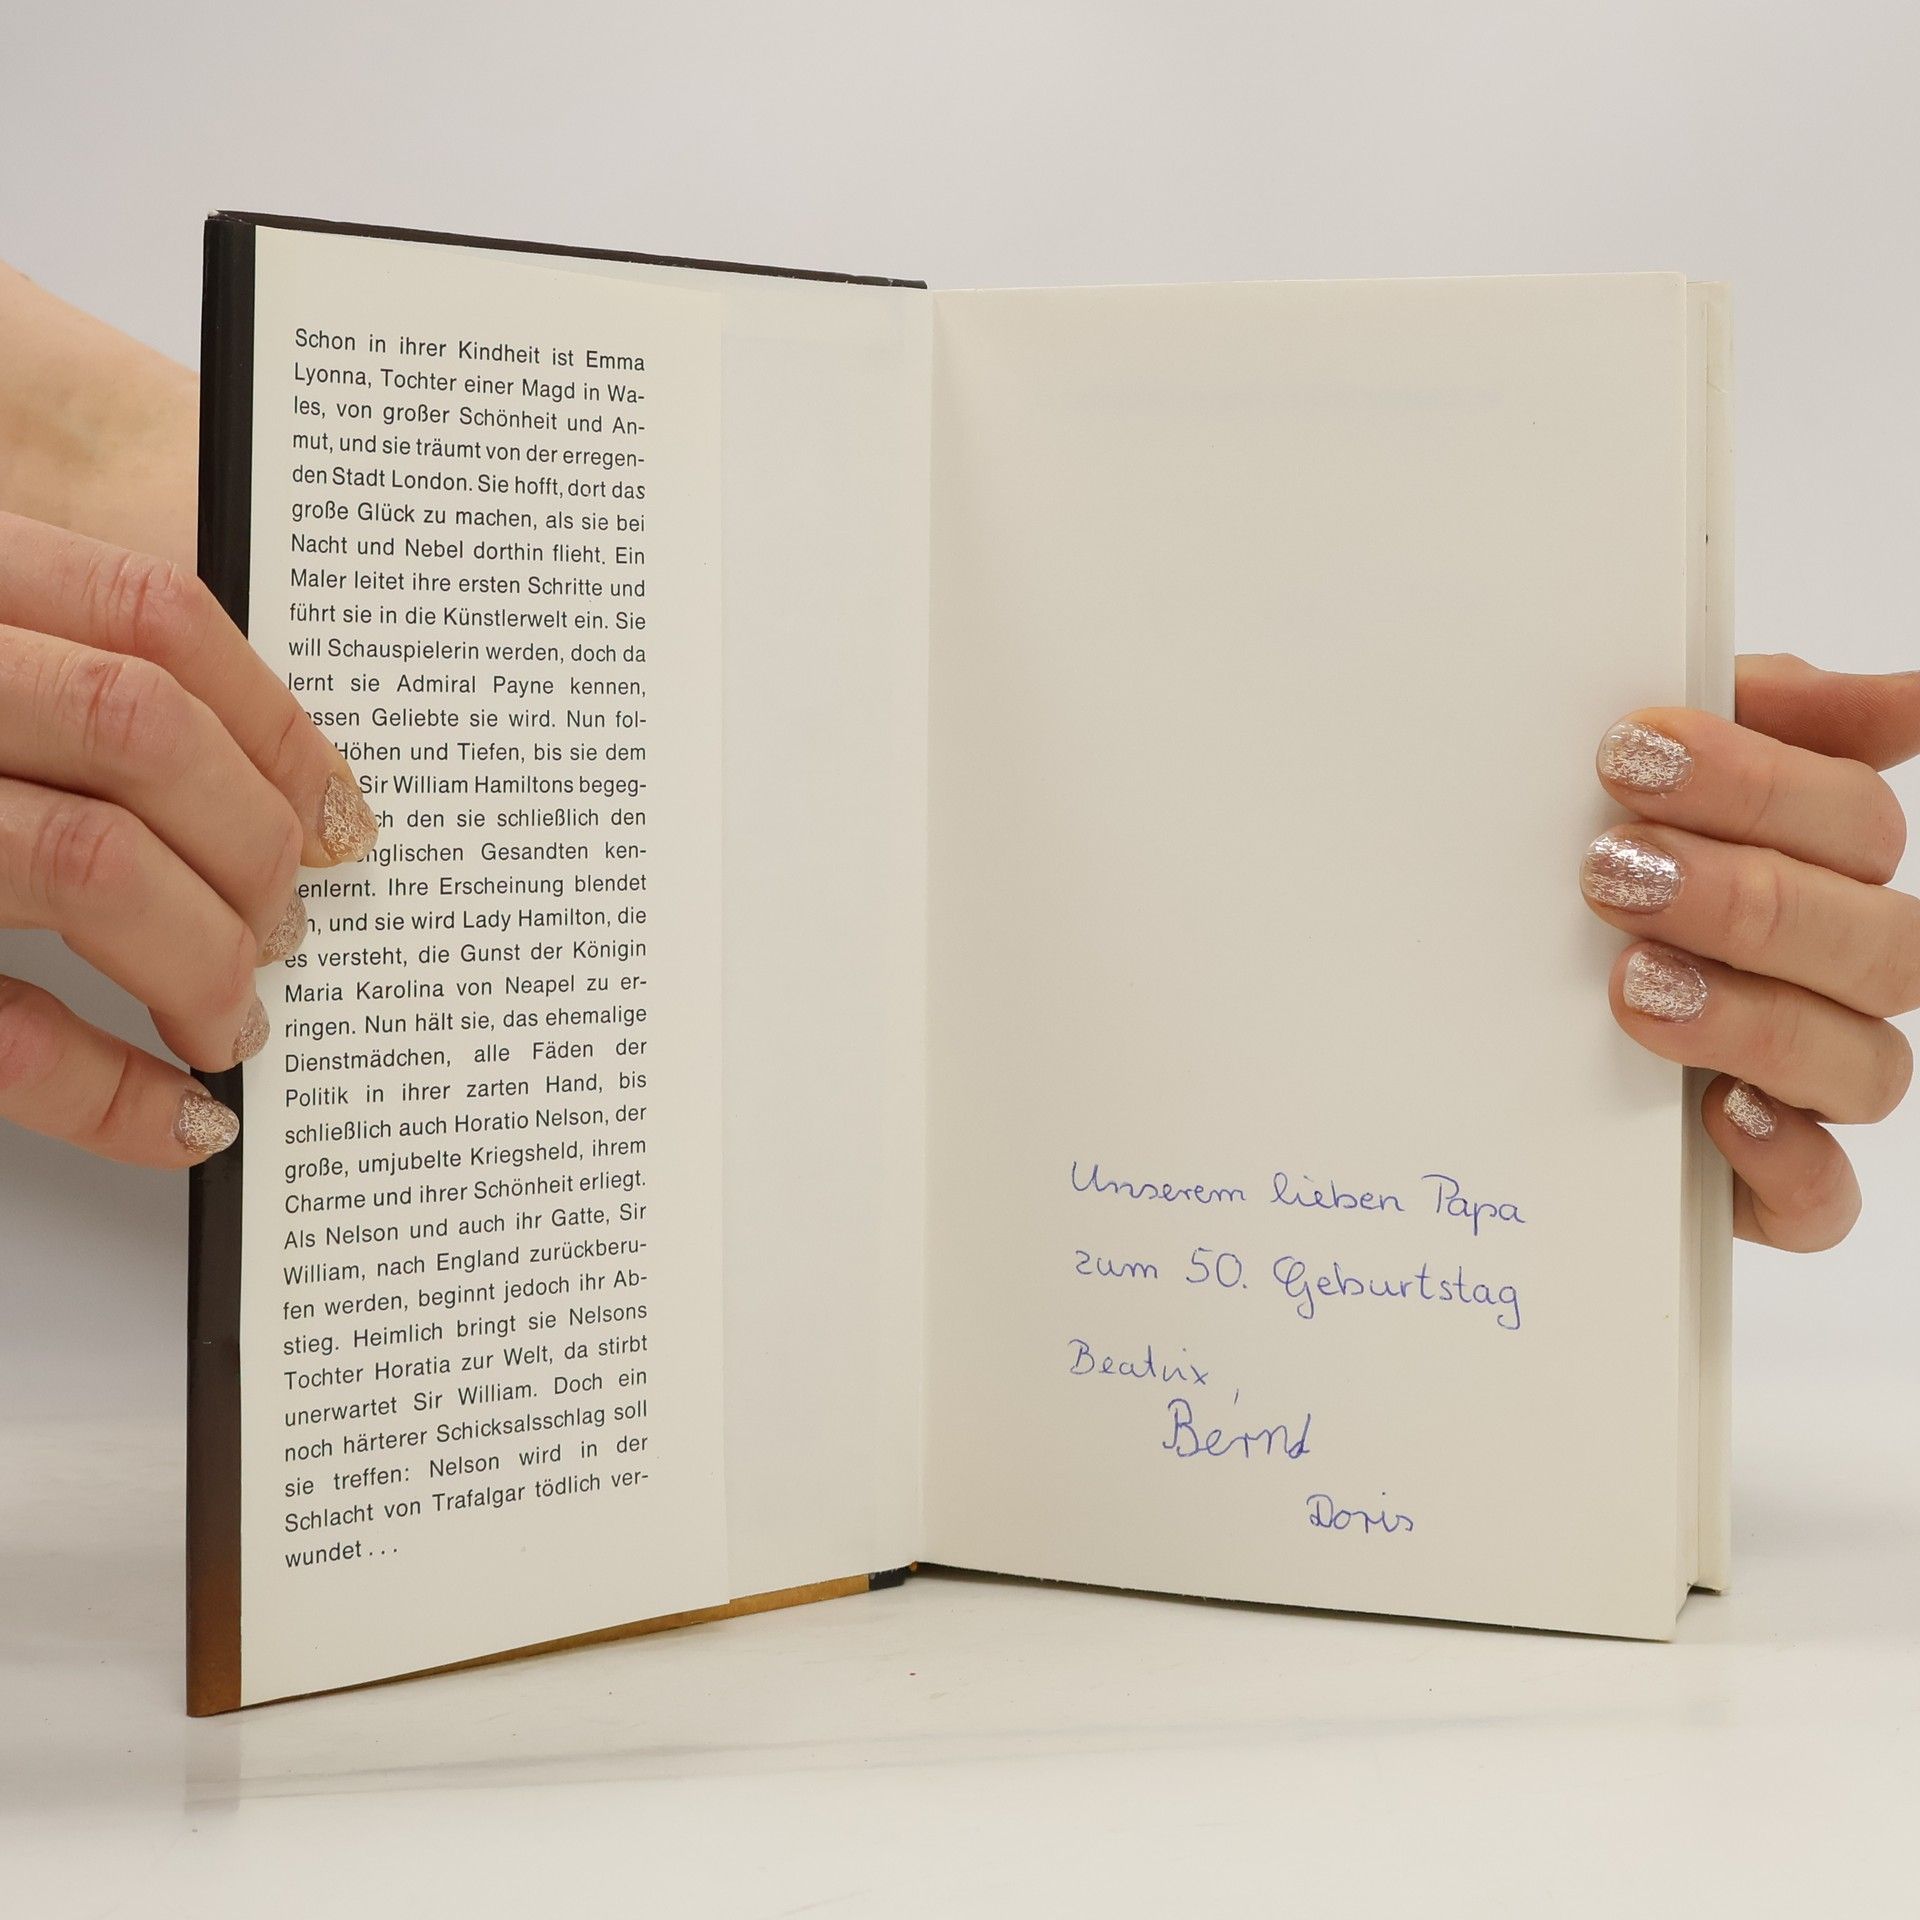 Schon in ihrer Kindheit ist Emma
Lyonna, Tochter einer Magd in Wa-
les, von großer Schönheit und An-
mut, und sie träumt von der erregen-
den Stadt London. Sie hofft, dort das
große Glück zu machen, als sie bei
Nacht und Nebel dorthin flieht. Ein
Maler leitet ihre ersten Schritte und
führt sie in die Künstlerwelt ein. Sie
will Schauspielerin werden, doch da
lernt sie Admiral Payne kennen,
Geliebte sie wird. Nun fol-
Höhen und Tiefen, bis sie dem
Sir William Hamiltons begeg-
den sie schließlich den
englischen Gesandten ken-
nenlernt. Ihre Erscheinung blendet
und sie wird Lady Hamilton, die
es versteht, die Gunst der Königin
Maria Karolina von Neapel zu er-
ringen. Nun hält sie, das ehemalige
Dienstmädchen, alle Fäden der
Politik in ihrer zarten Hand, bis
schließlich auch Horatio Nelson, der
große, umjubelte Kriegsheld, ihrem
Charme und ihrer Schönheit erliegt.
Als Nelson und auch ihr Gatte, Sir
William, nach England zurückberu-
fen werden, beginnt jedoch ihr Ab-
stieg. Heimlich bringt sie Nelsons
Tochter Horatia zur Welt, da stirbt
unerwartet Sir William. Doch ein
noch härterer Schicksalsschlag soll
sie treffen: Nelson wird in der
Schlacht von Trafalgar tödlich ver-
wundet . . .
Unserem lieben Papa
zum 50. Geburtstag
Beatrix,
Bernd
Doris